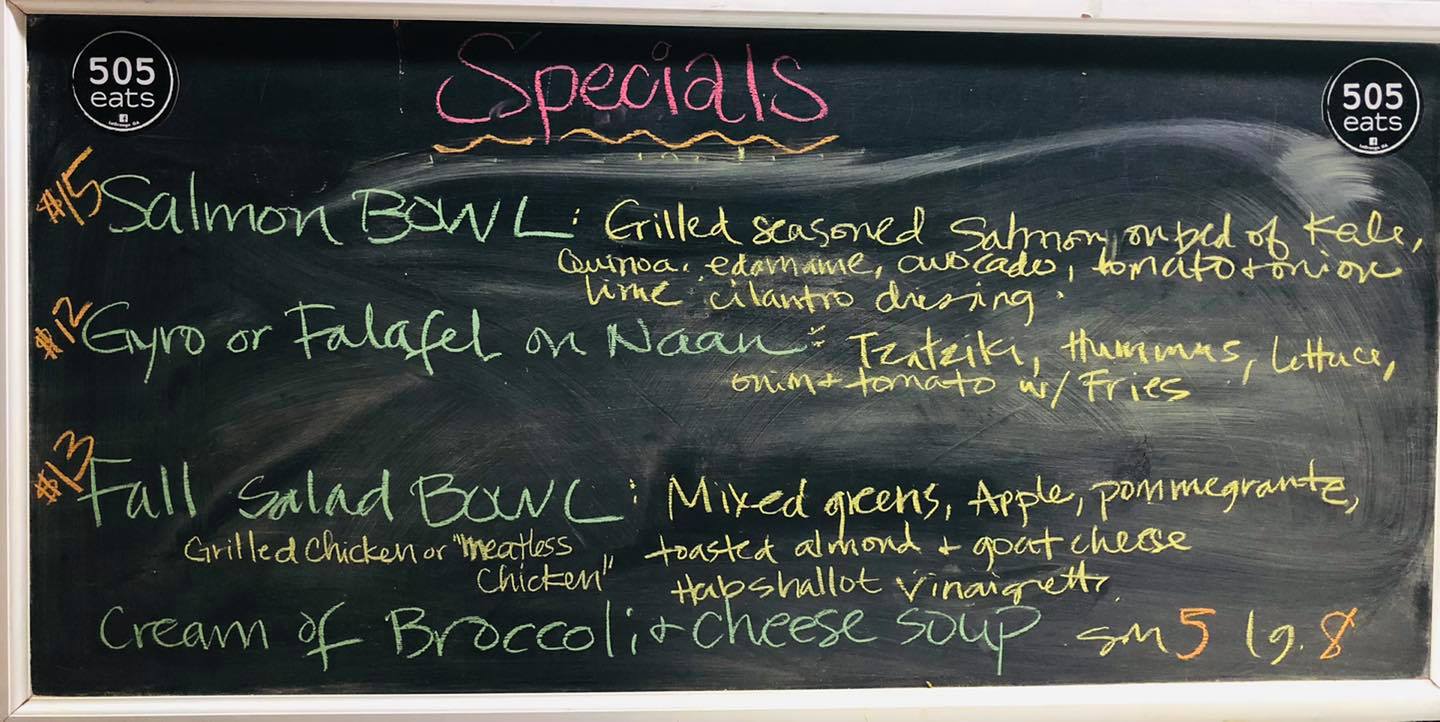 505
eats
Specials
505
eats
$15 Salmon BOWL : Grilled seasoned Salmon on bed of Kale,
Quinoa, edamame, avocado, tomato + onion
lime cilantro dressing.
$12 Gyro or Falafel on Naan : Tzatziki, Hummus, Lettuce,
onion + tomato w/ Fries
$13 Fall Salad BOWL : Mixed greens, Apple, pommegrante,
Grilled Chicken or "meatless toasted almond + goat cheese
Chicken" shallot vinaigrette
Cream of Broccoli + cheese soup sm 5 lg. 8